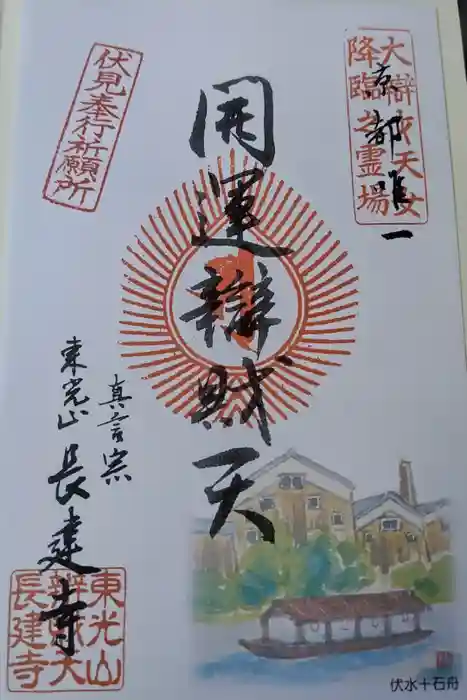 大辯才天女
降臨之霊場
京都唯一
開運辯財天
伏見奉行祈願所
真言宗
東光山 長建寺
東光山
辯財天
長建寺
伏水十石舟